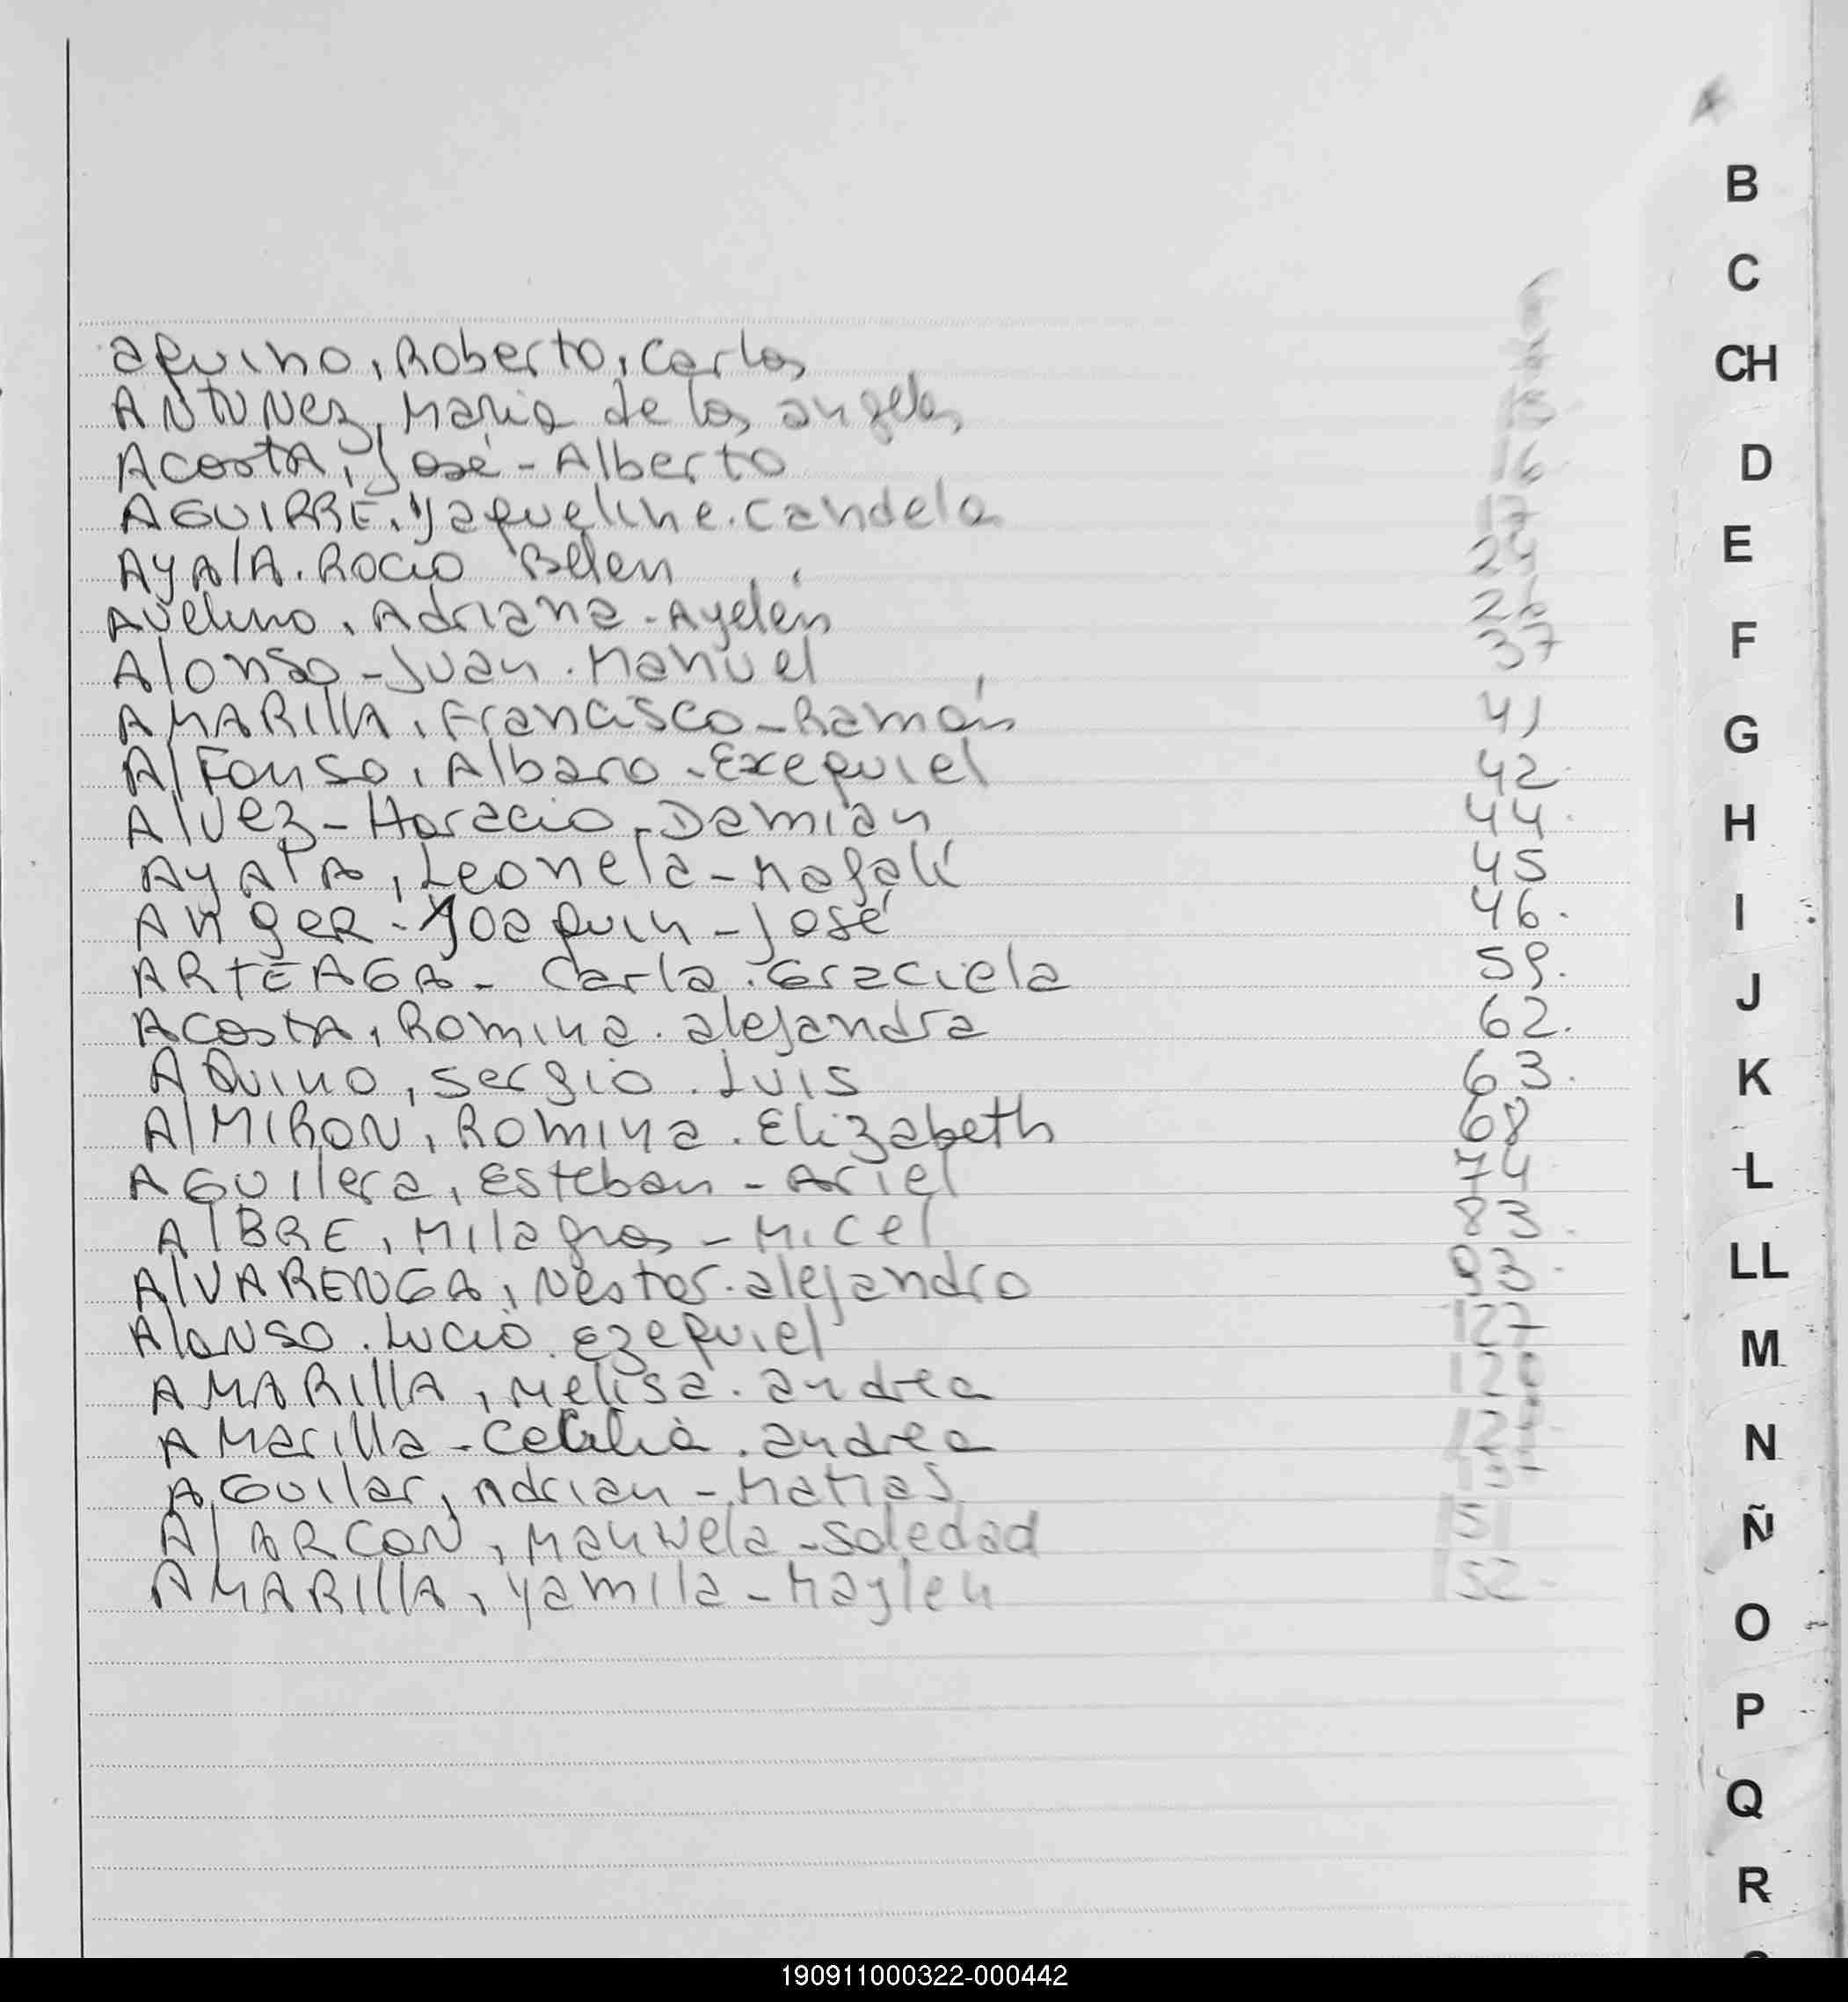 B
C
CH
D
E
F
G
H
I
J
K
L
LL
M
N
Ñ
O
P
Q
R
aquino, Roberto, Carlos
ANTUNez, Maria de los angeles
ACostA, José - Alberto 16
AGUIRRE. Yaqueline. Candela 17
AyAlA. Rocio Belen 24
Avelino, Adriana - Ayelén 26
Alonso - Juan. Manuel 37
AMARIllA, Francisco - Ramón 41
AlFonso, Albaro - Exequiel 42
Alvez - Horacio - Damian 44
AyAlA, Leonela - Magalí 45
ANgeR - Joaquin - José 46.
ARTEAGA - Carla. Graciela 59.
ACostA, Romina. alejandra 62.
AQuino, Sergio. Luis 63.
AlMIRON, Romina. Elizabeth 68
AGUIlera, Esteban - Ariel 74
AlBRE, Milagros - Micel 83.
AlVARENGA, Nestor. alejandro 93.
AlonSo. Lucio. Ezequiel 127
AMARIllA, Melisa. andrea
AMarilla - Cecilia. andrea
AGUIlar, Adrian - Matias
AlARCON, Manuela - Soledad 151
AMARIllA, Yamila - Maylen 152
190911000322-000442